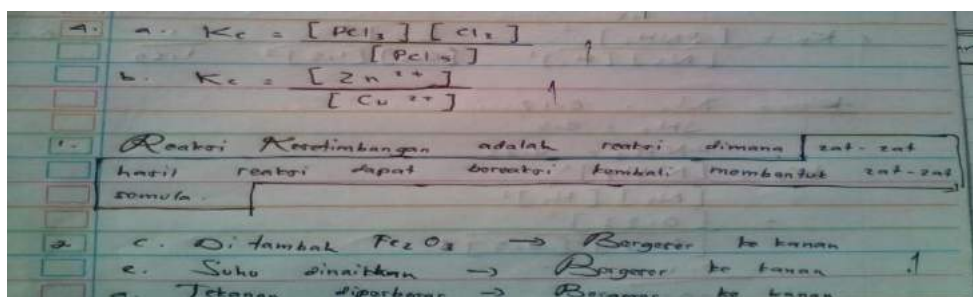 4. a. Kc = [ PCl3 ] [ Cl2 ]
[ PCl5 ] 1
b. Kc = [ Zn 2+ ]
[ Cu 2+ ] 1
1. Reaksi Kesetimbangan adalah reaksi dimana zat-zat
hasil reaksi dapat bereaksi kembali membentuk zat-zat
semula.
2 c. Di tambah Fe2O3 → Bergeser ke kanan
e. Suhu dinaikkan → Bergeser ke kanan 1
Tekanan diperbesar → Bergeser ke kanan